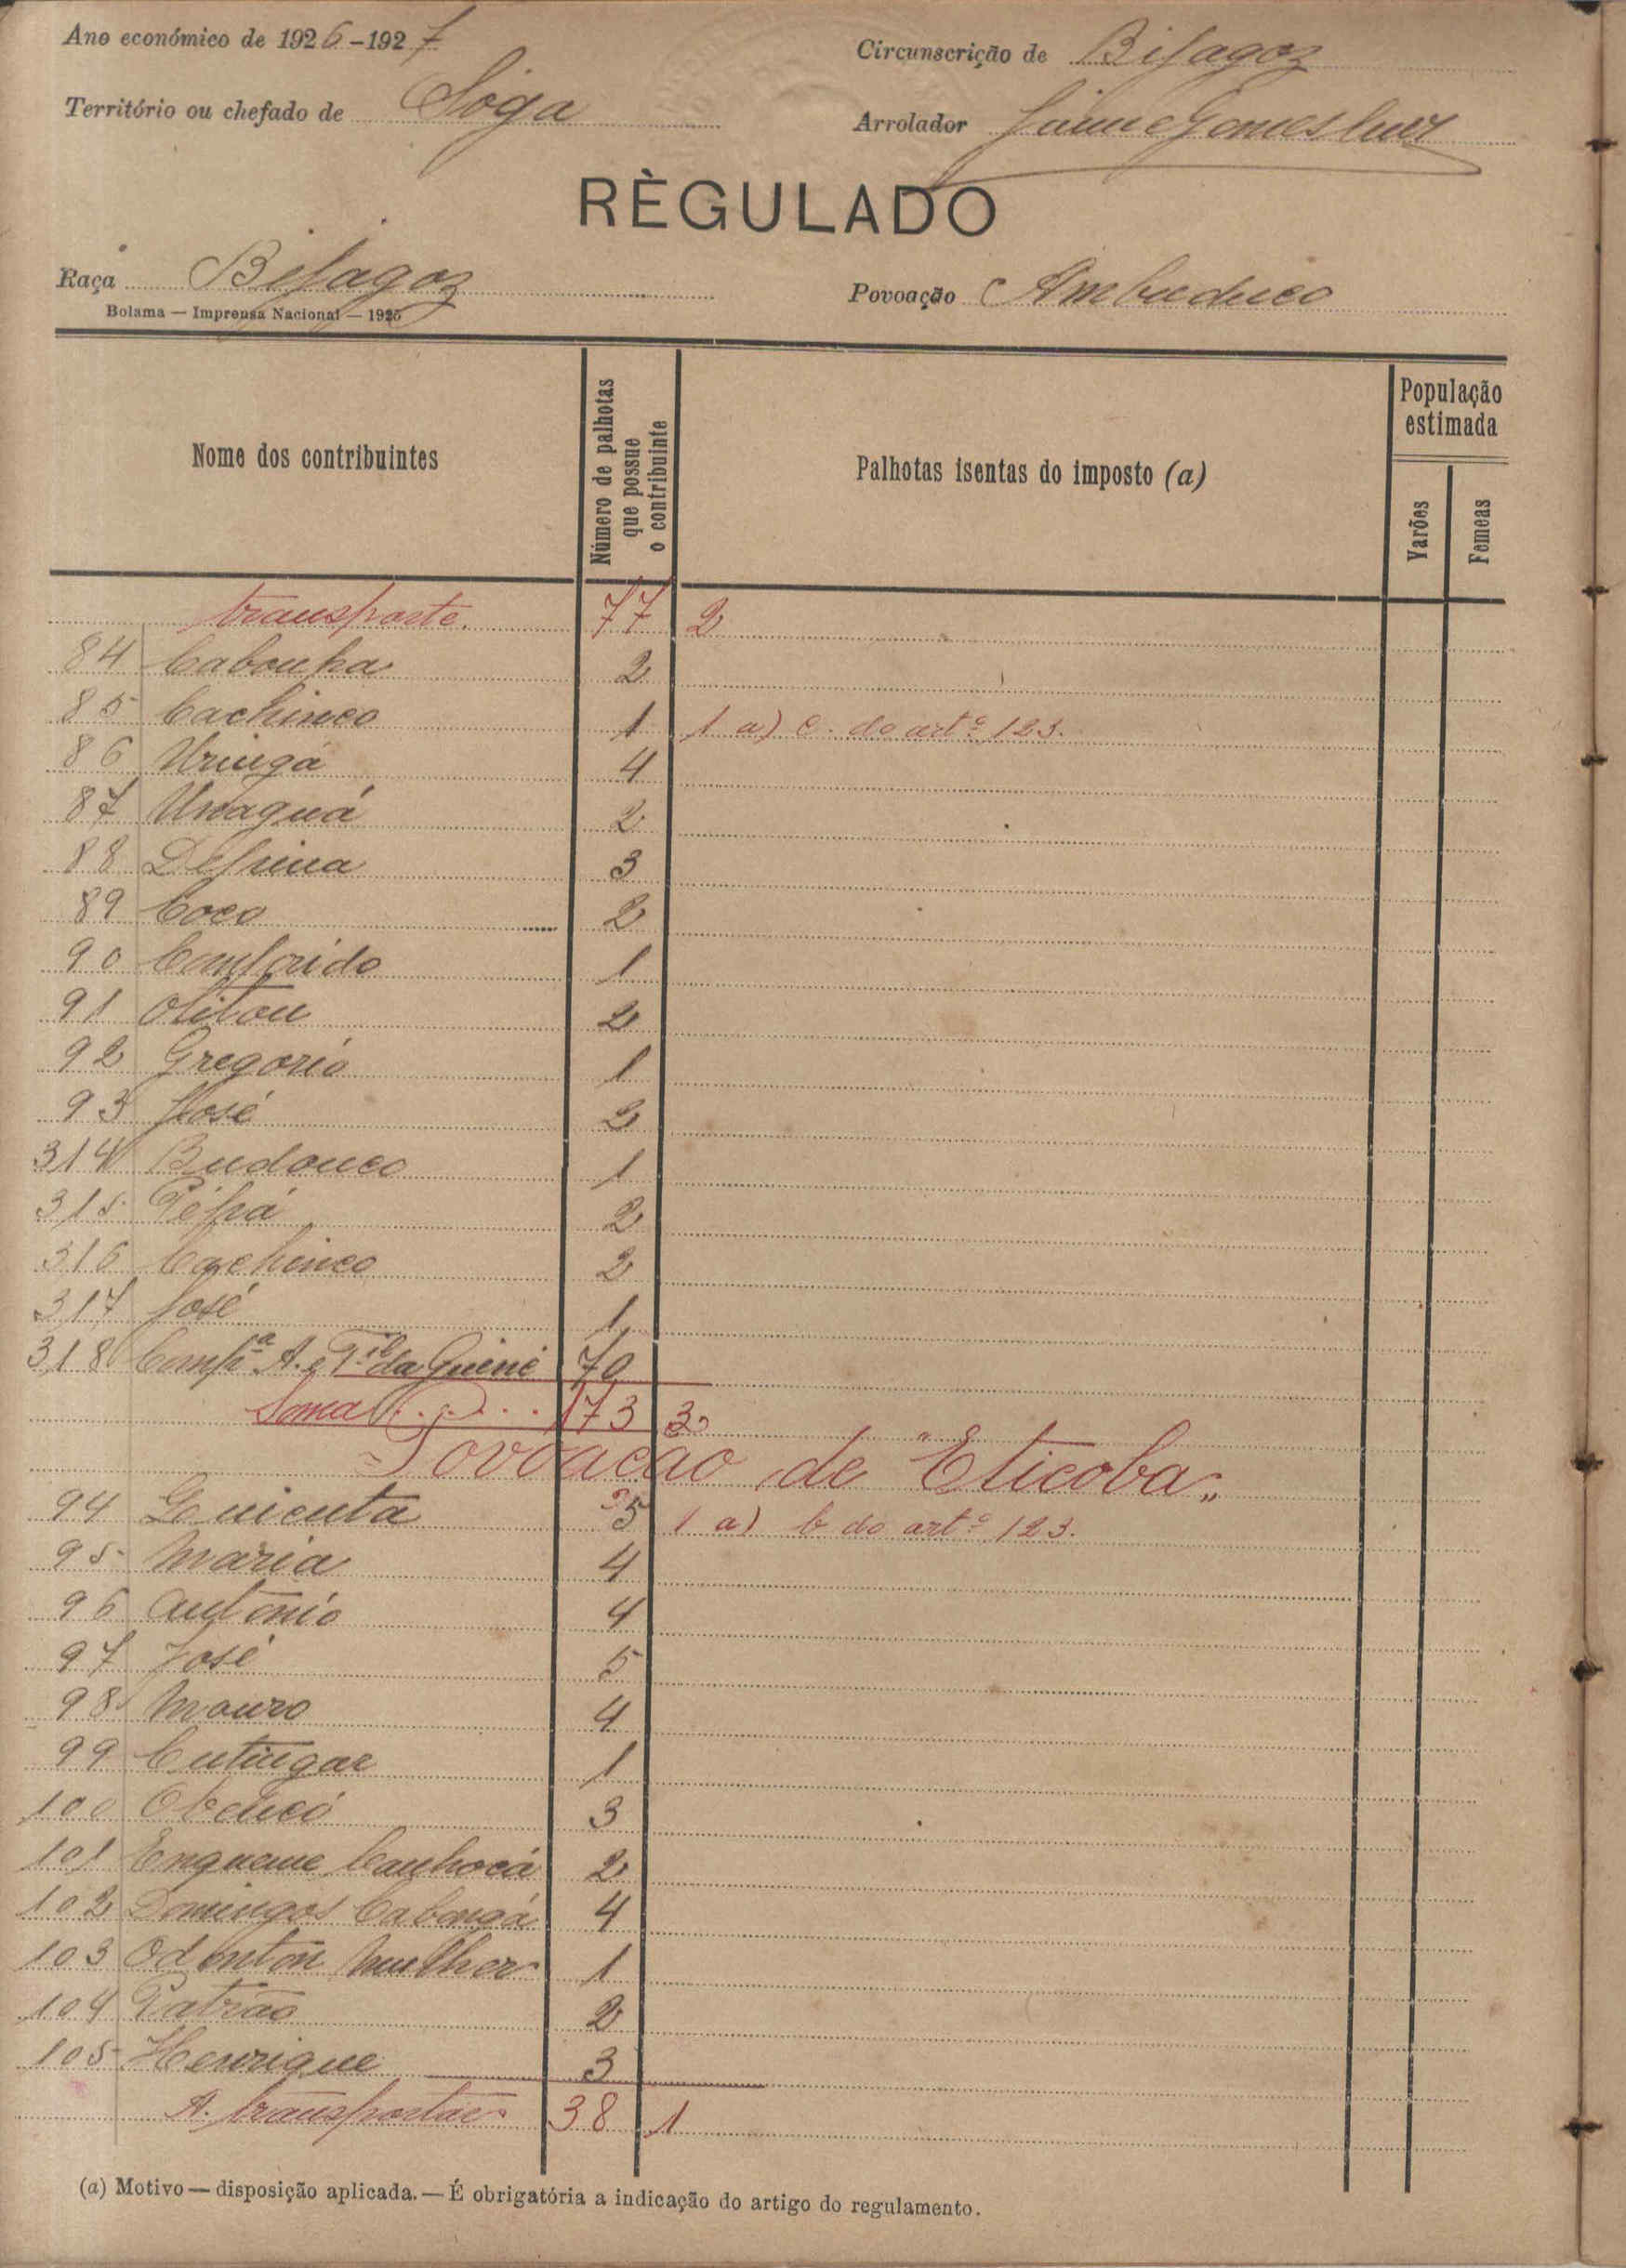 Ano económico de 1926-1927
Circunscrição de Bijagoz
Território ou chefado de Soga
Arrolador Jaime Gomes
RÈGULADO
Raça Bijagoz
Povoação Ambuduco
Bolama — Imprensa Nacional — 1925
Nome dos contribuintes
Número de palhotas que possue o contribuinte
Palhotas isentas do imposto (a)
População estimada
Varões
Femeas
transporte. 77 2
84 Cabonha 2
85 Cachinco 1 1 a) c. do artº 123.
86 Uringá 4
87 Unaguá 2
88 Defrina 3
89 Coco 2
90 1
91 Olitou 2
92 Gregorio 1
93 José 2
314 Budouco 1
315 Pépá 2
316 Cachinco 2
317 José 1
318 Compª A. e da Guiné 70
Soma 173 3
Povoação de "Eticoba"
94 Guienta 5 1 a) b do artº 123.
95 Maria 4
96 António 4
97 José 5
98 Mouro 4
99 Cutingar 1
100 Obeucó 3
101 Enqueme Canhocá 2
102 Domingos Cabongá 4
103 Odonton Mulher 1
104 Patrão 2
105 Henrique 3
A transportar 38 1
(a) Motivo — disposição aplicada. — É obrigatória a indicação do artigo do regulamento.